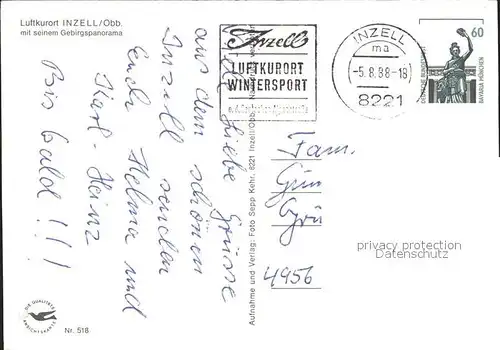 Luftkurort INZELL/Obb.
mit seinem Gebirgspanorama
Inzell
LUFTKURORT
WINTERSPORT
INZELL
ma
-5.8.88-18
8221
60
DEUTSCHE BUNDESPOST
BAVARIA MÜNCHEN
Viele liebe Grüsse
aus dem schönen
Inzell senden
Euch Helma und
Karl-Heinz
Bis bald!!!
Fam.
4956
privacy protection
Datenschutz
Aufnahme und Verlag: Foto Sepp Kehr, 8221 Inzell/Obb.
DIE QUALITÄTS
ANSICHTSKARTE
Nr. 518